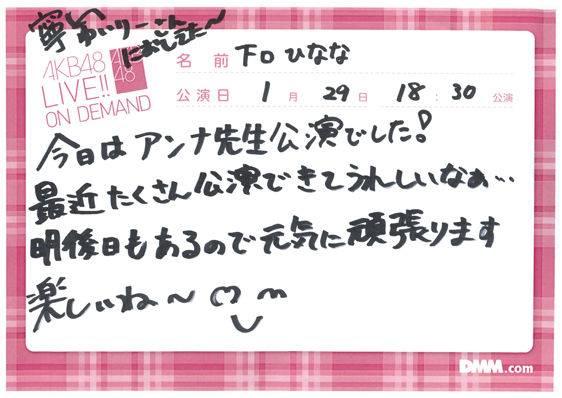 寧しゅいりーさん
におしえた〜
AKB48
LIVE!!
ON DEMAND
AKB
48
名前 下口ひなな
公演日 1月 29日 18:30 公演
今日はアンナ先生公演でした!
最近たくさん公演できてうれしいなぁ…
明後日もあるので元気に頑張ります
楽しいね〜
DMM.com